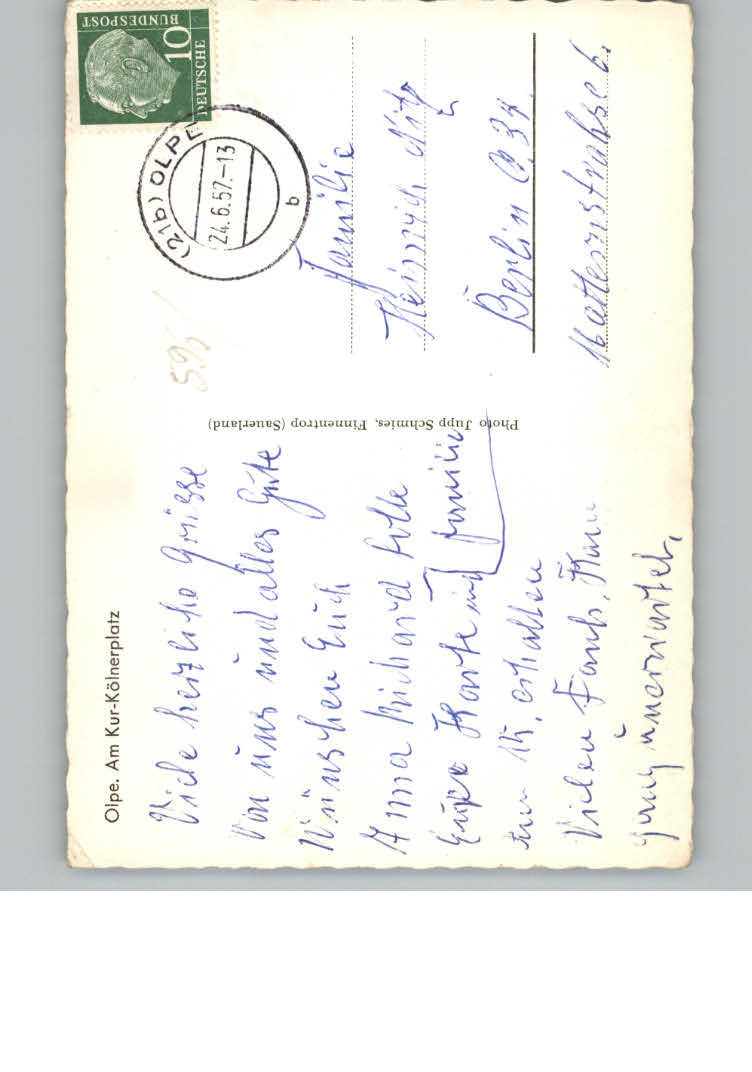 Olpe. Am Kur-Kölnerplatz
Viele herzliche Grüsse
Von uns und alles Gute
Wünschen Euch
Anna Richard
Eure Karte und Familie
am 15. erhalten
Vielen Dank, Kam
ganz unerwartet,
Photo Jupp Schmies, Finnentrop (Sauerland)
595
DEUTSCHE
BUNDESPOST
10
(21b) OLPE
24.6.57.-13
b
Familie
Heinrich
Berlin O. 34.